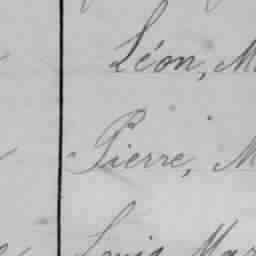 Léon, M
Pierre, M
Louis Mar